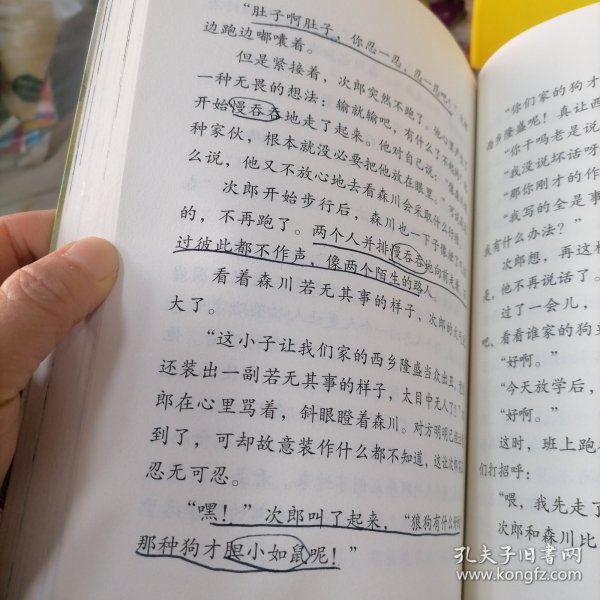 “肚子啊肚子，你忍一忍，忍一忍吧！”
边跑边嘟囔着。
但是紧接着，次郎突然不跑了。他心里
一种无畏的想法：输就输吧，有什么了不起
开始慢吞吞地走了起来。他对自己说：
种家伙，根本就没必要把他放在眼里。”
么说，他又不放心地去看森川会采取什么
次郎开始步行后，森川也一下子像
的，不再跑了。两个人并排慢吞吞地向前走着，
过彼此都不作声，像两个陌生的路人。
看着森川若无其事的样子，次郎的火气
大了。
“这小子让我们家的西乡隆盛当众出丑，
还装出一副若无其事的样子，太目中无人了！”
郎在心里骂着，斜眼瞪着森川。对方明明已经
到了，可却故意装作什么都不知道，这让次郎
忍无可忍。
“嘿！”次郎叫了起来，“狼狗有什么
那种狗才胆小如鼠呢！”
“你们家的狗才
西乡隆盛呢！真让西
“你干吗老是说
“我没说坏话呀
“那你刚才的作
“我写的全是事
我有什么办法？”
次郎想，再这样
是，他不再说话了。
过了一会儿，
吧，看看谁家的狗
“好啊。”
“今天放学后，
“好啊。”
这时，班上跑
们打招呼：
“喂，我先走了
次郎和森川比
孔夫子旧书网
www.kongfz.com